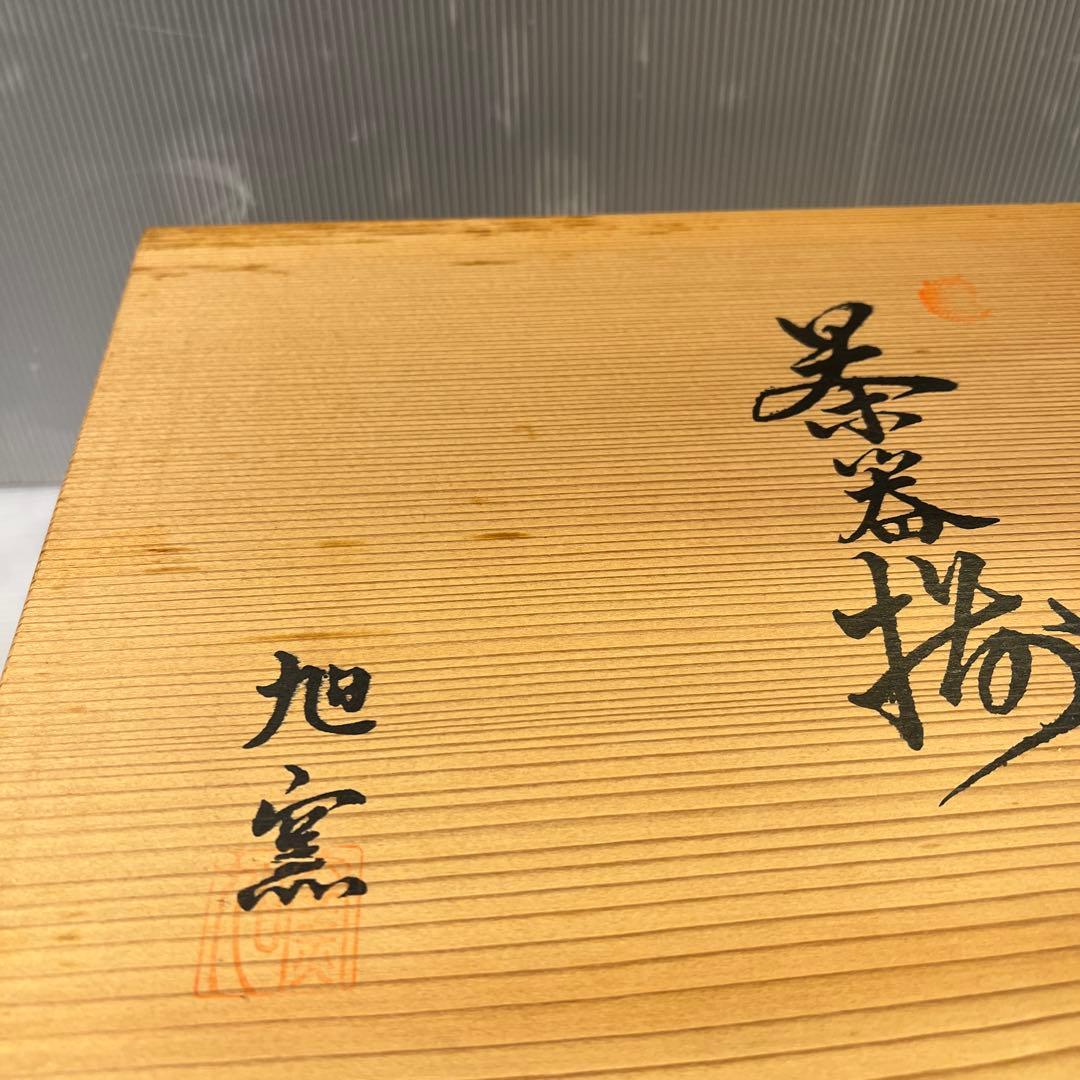 茶器揃
旭窯